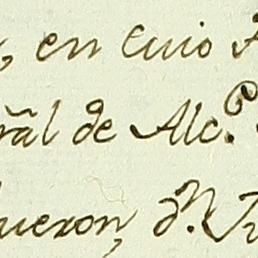 en cuio
ral de Alc.ᵉ
ueron, d.ⁿ